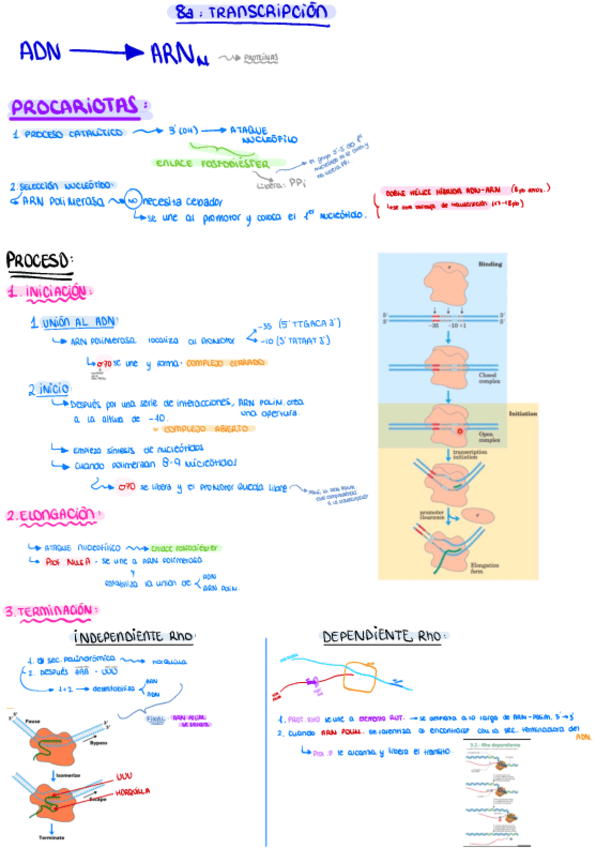 8a: TRANSCRIPCIÓN
ADN → ARNm → PROTEÍNAS
PROCARIOTAS:
1. PROCESO CATALÍTICO → 3'(OH) → ATAQUE NUCLEÓFILO
ENLACE FOSFODIÉSTER
LIBERA: PPi
2. SELECCIÓN NUCLEÓTIDO:
ARN Polimerasa → NO necesita cebador
↳ se une al promotor y coloca el 1er nucleótido.
DOBLE HÉLICE HÍBRIDA ADN-ARN (8 pb aprox.)
PROCESO:
1. INICIACIÓN:
1 UNIÓN AL ADN:
↳ ARN polimerasa localiza al promotor
-35 (5' TTGACA 3')
-10 (5' TATAAT 3')
↳ σ70 se une y forma: COMPLEJO CERRADO
2 INICIO
↳ Después por una serie de interacciones, ARN POLIM. crea
a la altura de -10. una apertura.
= COMPLEJO ABIERTO
↳ Empieza síntesis de nucleótidos
↳ Cuando polimerizan 8-9 nucleótidos
↳ σ70 se libera y el promotor queda libre
Binding
5' 3'
3' 5'
-35 -10 +1
Closed complex
Initiation
Open complex
transcription initiation
promoter clearance
Elongation form
2. ELONGACIÓN:
↳ Ataque nucleofílico → enlace fosfodiéster
↳ Prot. NusA - se une a ARN polimerasa
y
estabiliza la unión de
ADN
ARN polim.
3. TERMINACIÓN:
INDEPENDIENTE Rho:
1. sec. palindrómica → horquilla
2. DESPUÉS AAA - UUU
↳ 1+2 → desestabiliza
ARN
ADN
FINAL: ARN POLIM. se separa
Pause
Bypass
Isomerize
UUU
HORQUILLA
Escape
Terminate
DEPENDIENTE Rho:
1. PROT. RHO se une a elemento RUT. → se arrastra a lo largo de ARN-polim. 5' → 3'
2. Cuando ARN POLIM. se ralentiza al encontrarse con la sec. terminadora del
ADN.
↳ Prot. ρ le alcanza y libera el tránsito.